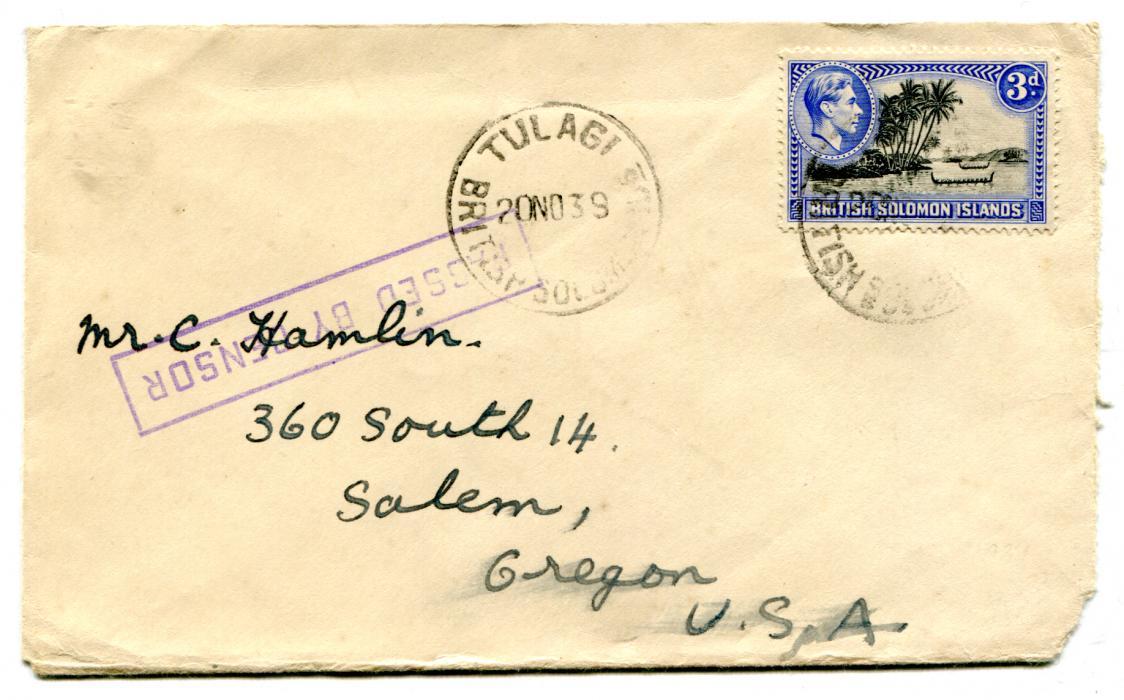 3d.
BRITISH SOLOMON ISLANDS
TULAGI
20NO39
BRITISH SOLOM
BRITISH SOLO
PASSED BY CENSOR
Mr. C. Hamlin.
360 South 14.
Salem,
Oregon
U.S.A.